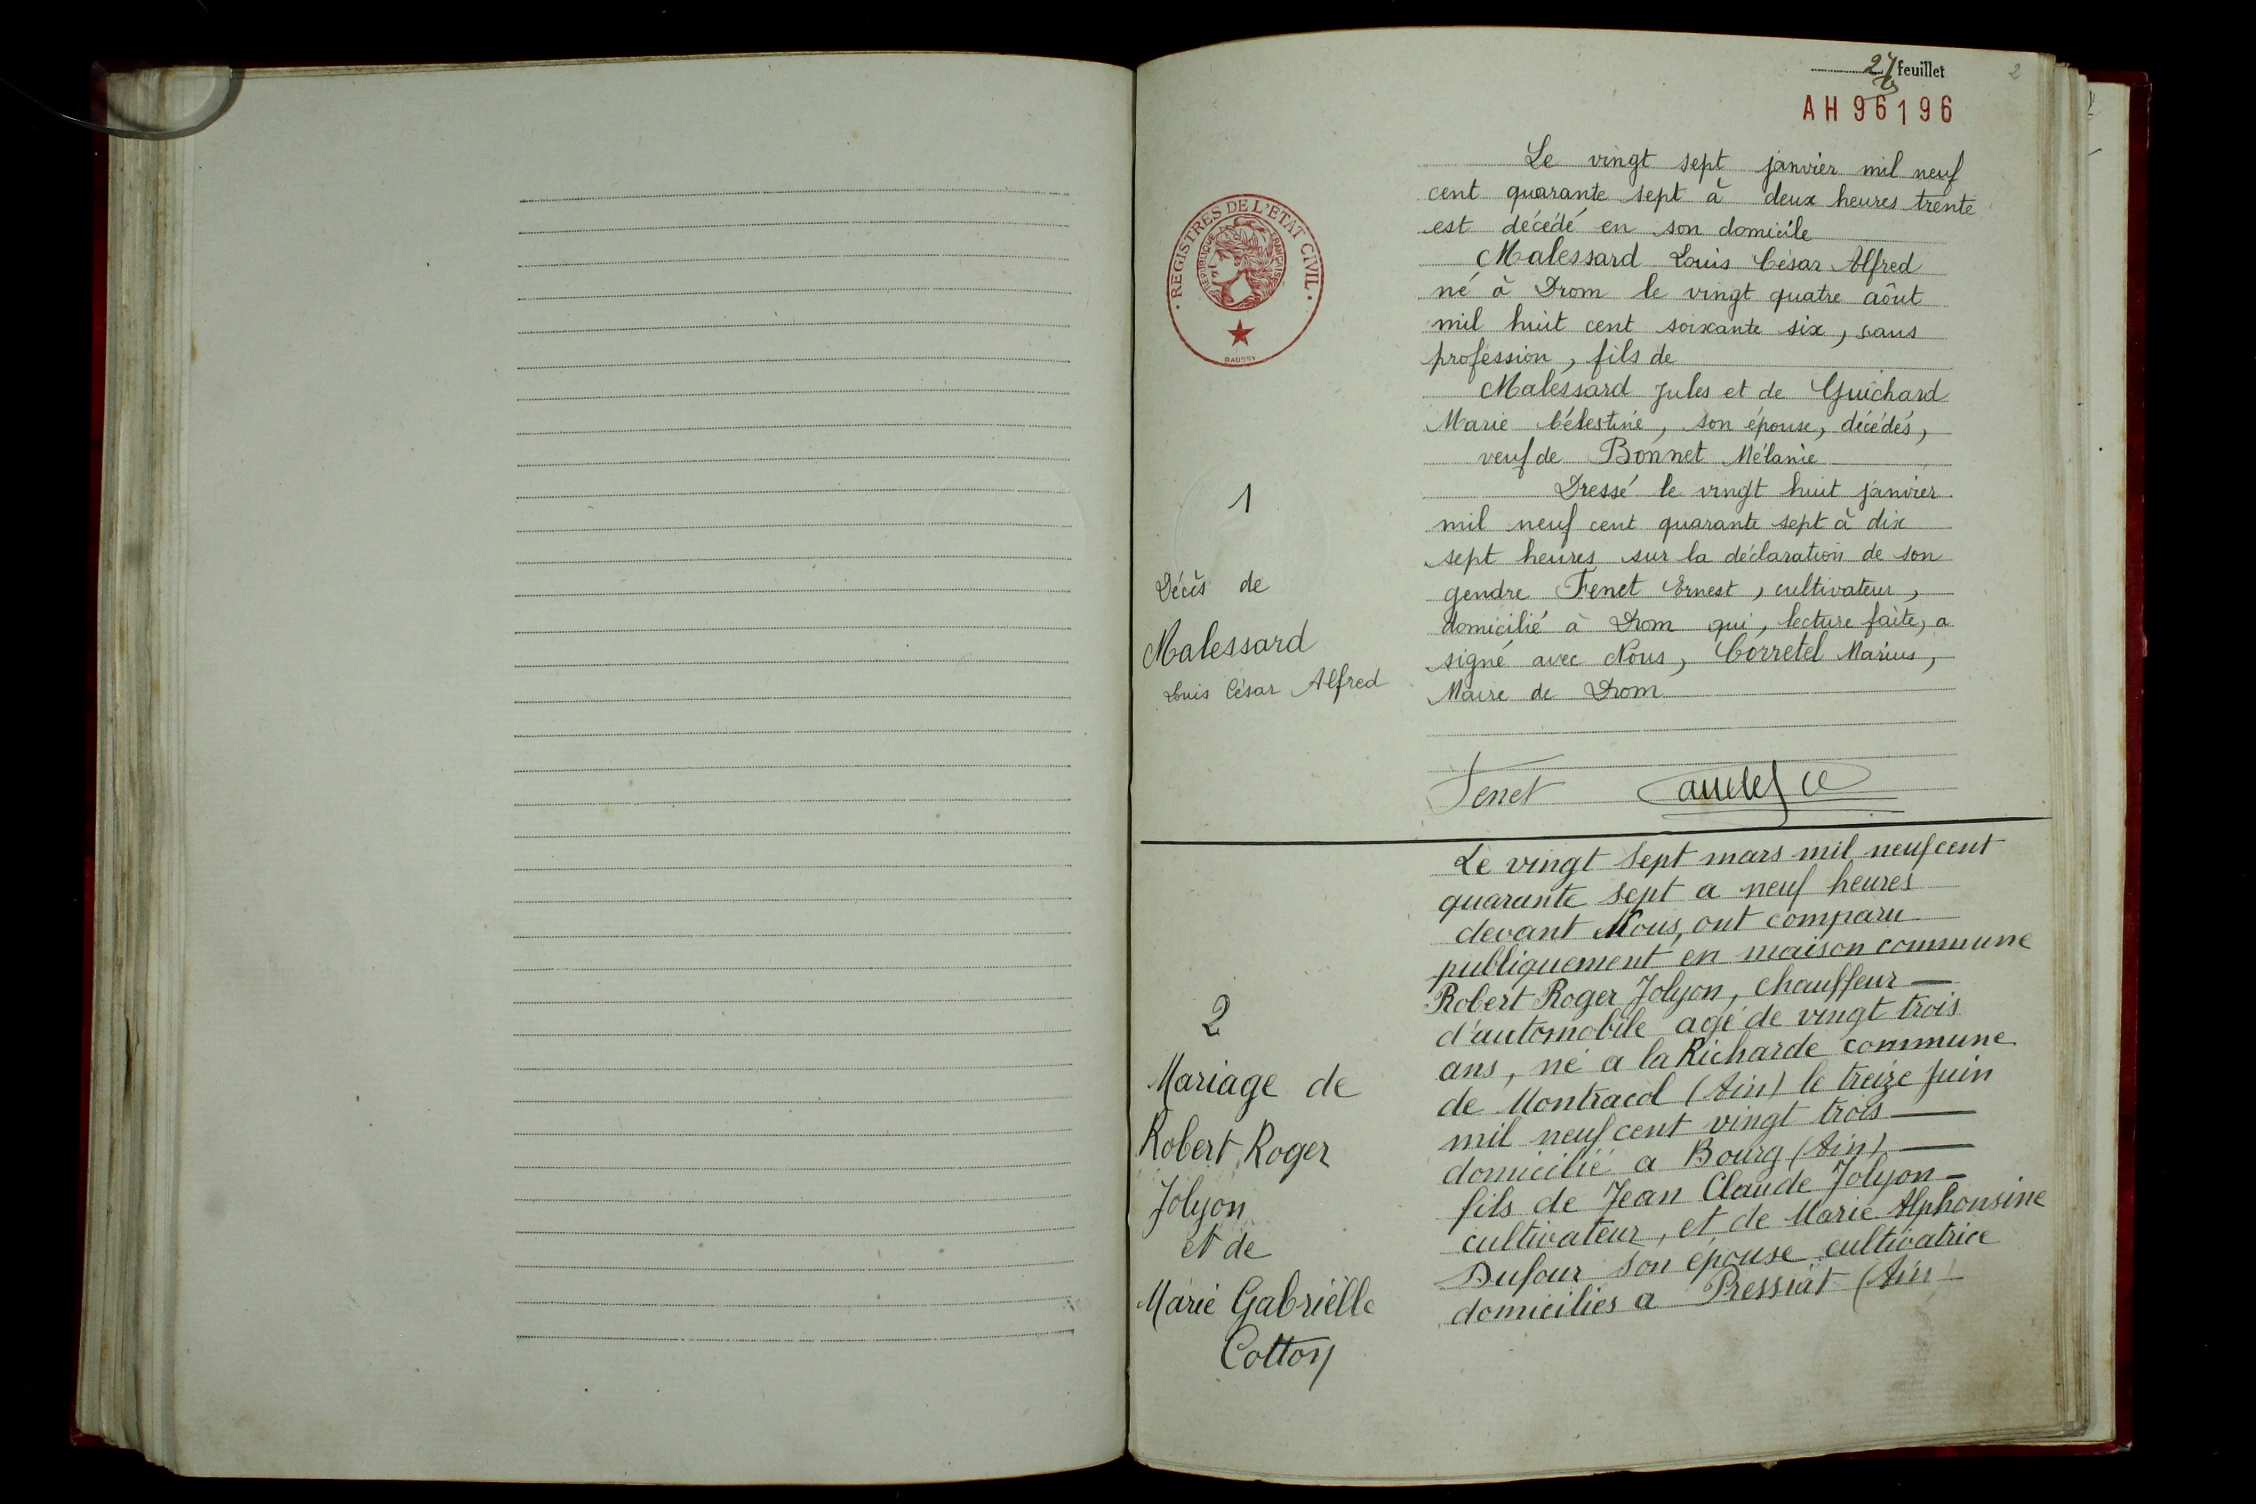 27 feuillet
2
AH 96196
REGISTRES DE L'ETAT CIVIL
REPUBLIQUE FRANÇAISE
Le vingt sept janvier mil neuf
cent quarante sept à deux heures trente
est décédé en son domicile
Malessard Louis César Alfred
né à Drom le vingt quatre aôut
mil huit cent soixante six, sans
profession, fils de
Malessard Jules et de Guichard
Marie Célestine, son épouse, décédés,
veuf de Bonnet Mélanie
Dressé le vingt huit janvier
mil neuf cent quarante sept à dix
sept heures sur la déclaration de son
gendre Fenet Ernest, cultivateur,
domicilié à Drom qui, lecture faite, a
signé avec Nous, Corretel Marius,
Maire de Drom
Fenet
1
Décès de
Malessard
Louis César Alfred
Le vingt sept mars mil neuf cent
quarante sept a neuf heures
devant Nous, ont comparu
publiquement en maison commune
Robert Roger Jolyon, chauffeur —
d'automobile agé de vingt trois
ans, né a la Richarde commune
de Montracol (Ain) le treize juin
mil neuf cent vingt trois —
domicilié a Bourg (Ain) —
fils de Jean Claude Jolyon —
cultivateur, et de Marie Alphonsine
Dufour son épouse cultivatrice
domiciliés a Pressiat (Ain)
2
Mariage de
Robert Roger
Jolyon
et de
Marie Gabrielle
Cotton